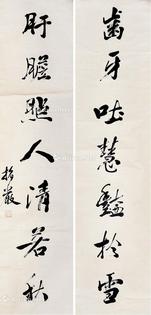 齒牙吐慧豔於雪
肝膽照人清若秋